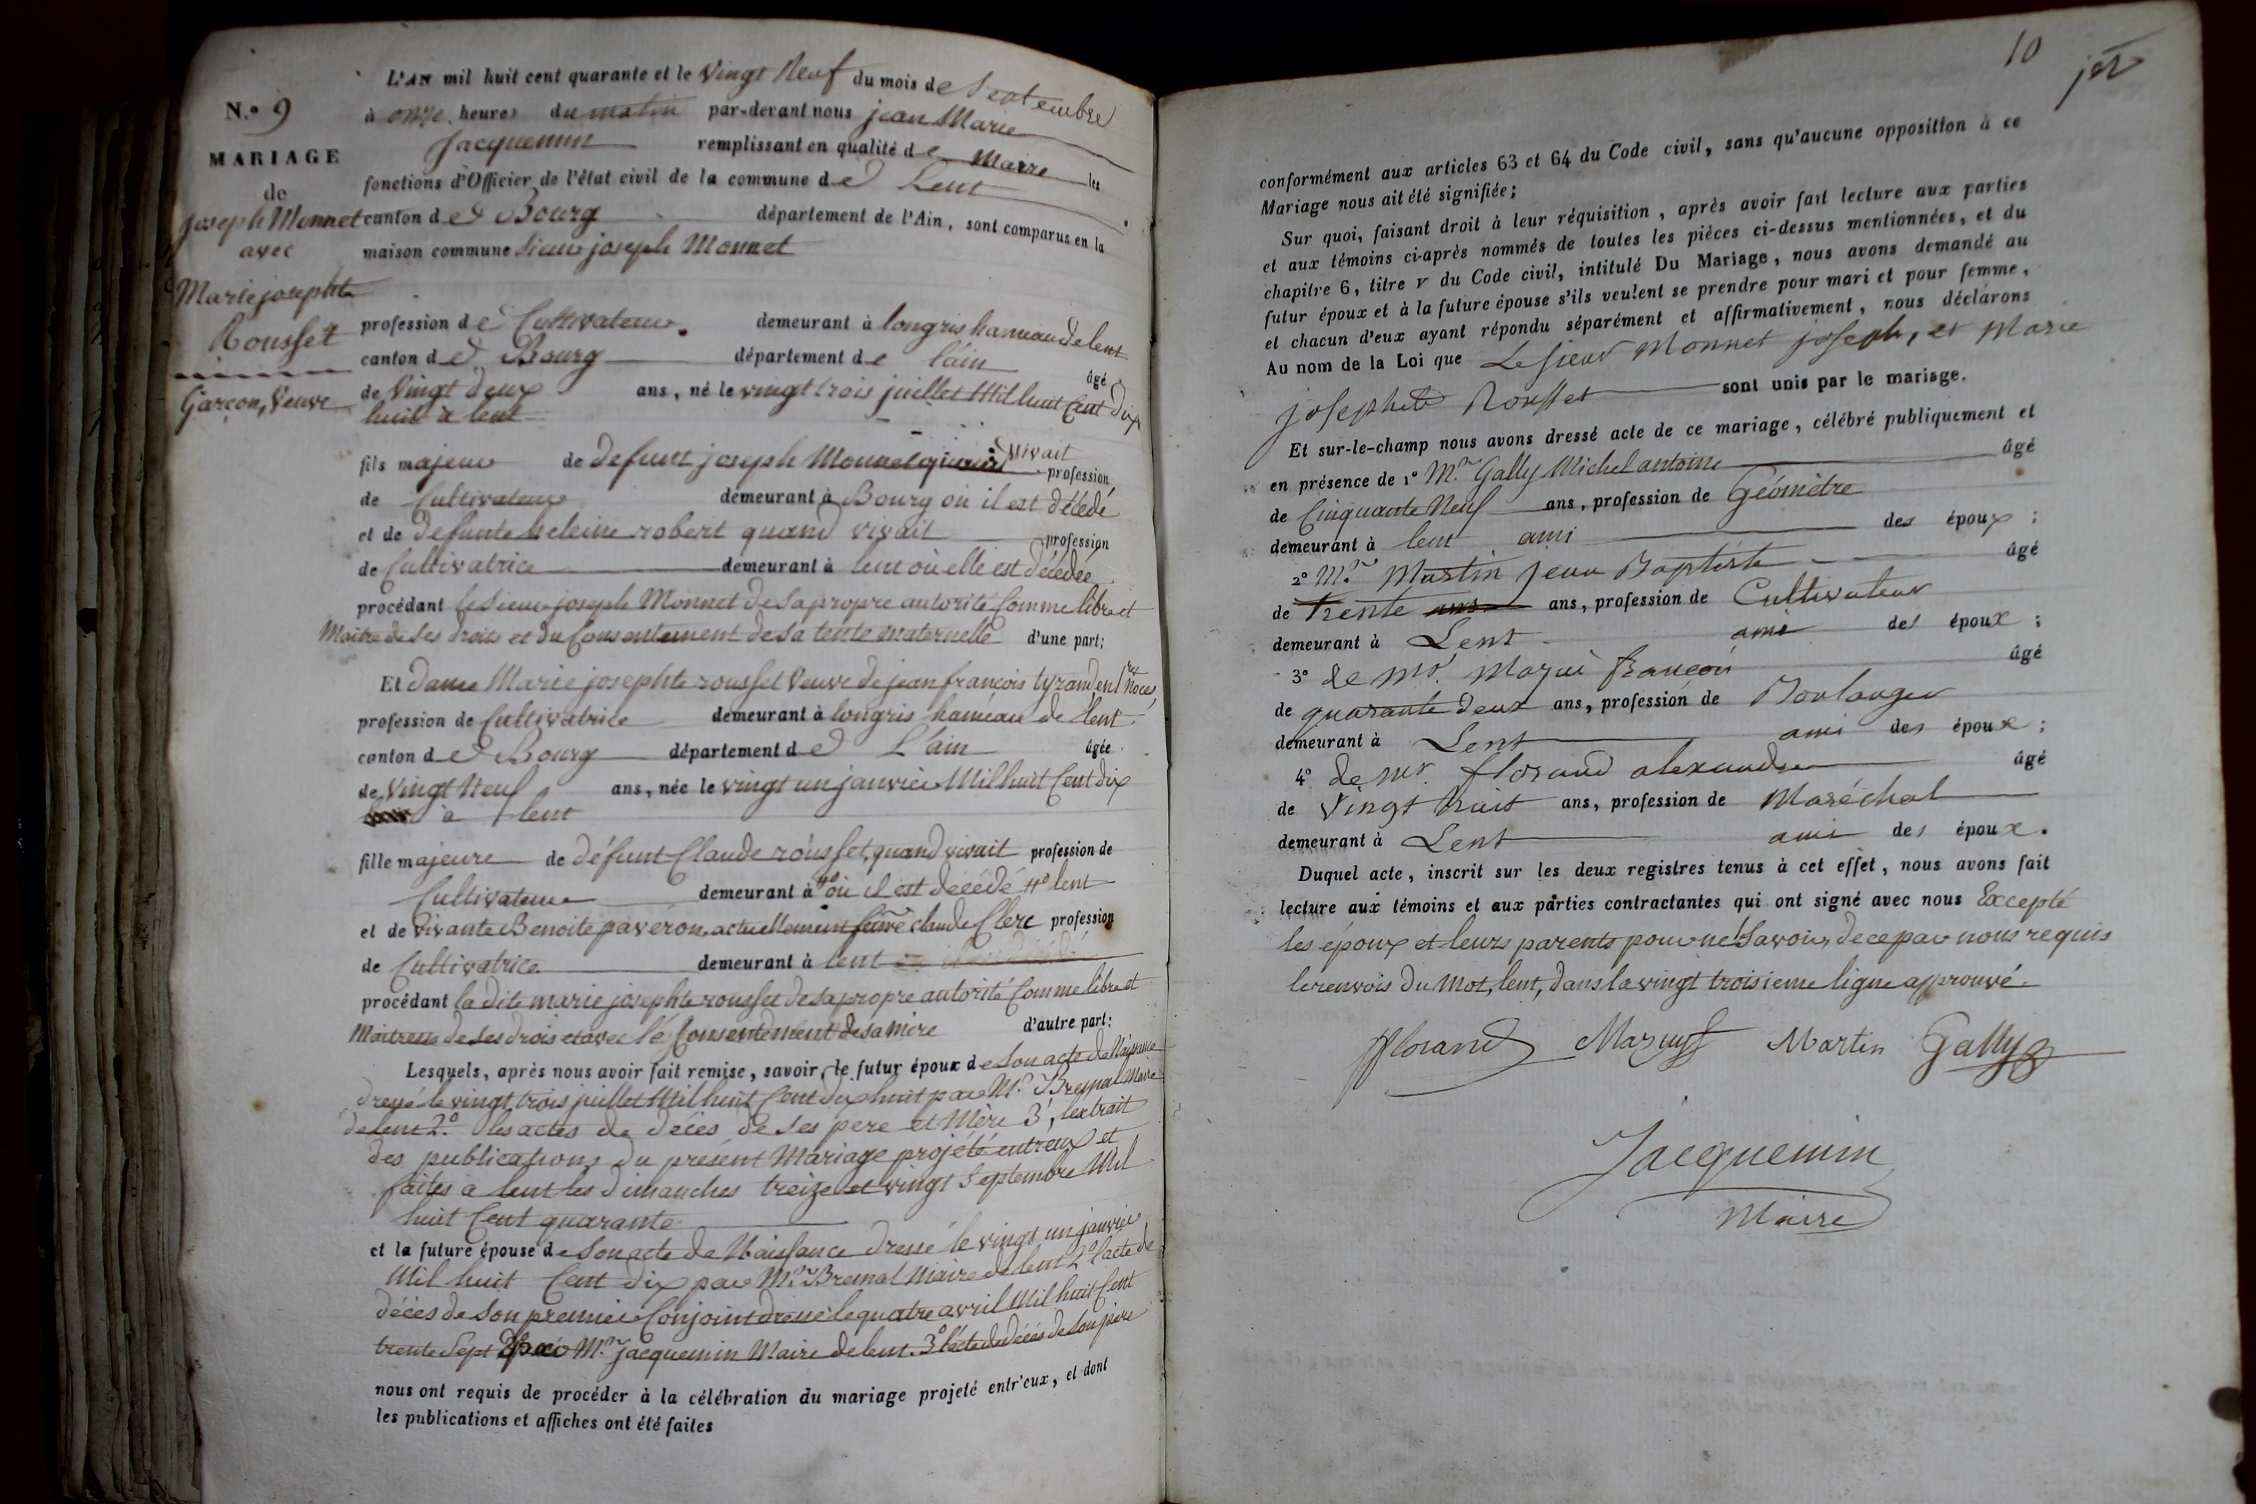 N.° 9
MARIAGE
de
joseph Monnet
avec
Marie josephte
Rousset
Garçon, Veuve
L'AN mil huit cent quarante et le Vingt Neuf du mois de Septembre
à onze heures du matin par-devant nous jean Marie
Jacquemin remplissant en qualité de Maire les
fonctions d'Officier de l'état civil de la commune de Lent
canton de Bourg département de l'Ain, sont comparus en la
maison commune Sieur joseph Monnet
profession de Cultivateur demeurant à longris hameau de lent
canton de Bourg département de l'ain âgé
de Vingt deux ans, né le vingt trois juillet Mil huit Cent dix
huit à lent
fils majeur de defunt joseph Monnet vivait profession
de Cultivateur demeurant à Bourg où il est décédé
et de defunte heleine robert quand vivait profession
de Cultivatrice demeurant à lent où elle est décédée
procédant le Sieur joseph Monnet de sa propre autorité Comme libre et
Maître de ses droits et du Consentement de sa tente maternelle d'une part;
Et dame Marie josephte rousset Veuve de jean françois tyrand en 1res Noces
profession de Cultivatrice demeurant à longris hameau de lent
canton de Bourg département de L'ain âgée
de Vingt Neuf ans, née le vingt un janvier Mil huit Cent dix
à lent
fille majeure de défunt Claude rousset, quand vivait profession de
Cultivateur demeurant à #° où il est décédé #° lent
et de vivante Benoite paveron, actuellement feme claude Clerc profession
de Cultivatrice demeurant à lent
procédant la dite marie josephte rousset de sa propre autorité Comme libre et
Maitresse de ses drois et avec le Consentement de sa mère d'autre part:
Lesquels, après nous avoir fait remise, savoir, le futur époux de Son acte de Naissance
dressé le vingt trois juillet Mil huit Cent dix huit par Mr. Bremal Maire
de lent 2° les actes de décès de ses pere et Mère 3°, l'extrait
des publications du présent Mariage projété entreux et
faites a lent les Dimanches treize et vingt Septembre Mil
huit Cent quarante
et la future épouse de Son acte de Naissance dressé le vingt un janvier
Mil huit Cent dix par Mr Bremal Maire de lent 2° l'acte de
décès de Son premier Conjoint dressé le quatre avril Mil huit Cent
trente Sept par Mr. jacquemin Maire de lent. 3° l'acte de décès de Son père
nous ont requis de procéder à la célébration du mariage projeté entr'eux, et dont
les publications et affiches ont été faites
10
conformément aux articles 63 et 64 du Code civil, sans qu'aucune opposition à ce
Mariage nous ait été signifiée;
Sur quoi, faisant droit à leur réquisition, après avoir fait lecture aux parties
et aux témoins ci-après nommés de toutes les pièces ci-dessus mentionnées, et du
chapitre 6, titre V du Code civil, intitulé Du Mariage, nous avons demandé au
futur époux et à la future épouse s'ils veulent se prendre pour mari et pour femme,
et chacun d'eux ayant répondu séparément et affirmativement, nous déclarons
Au nom de la Loi que Le sieur Monnet joseph, et Marie
josephete Rousset sont unis par le mariage.
Et sur-le-champ nous avons dressé acte de ce mariage, célébré publiquement et
en présence de 1° Mr. Gally Michel antoine âgé
de Cinquante Neuf ans, profession de Géomètre
demeurant à lent ami des époux;
2° Mr. Martin jean Baptiste âgé
de trente ans, profession de Cultivateur
demeurant à Lent ami des époux;
3° de mr. Mazui françois âgé
de quarante deux ans, profession de Boulanger
demeurant à Lent ami des époux;
4° de mr. florand alexandre âgé
de Vingt huit ans, profession de Maréchal
demeurant à Lent ami des époux.
Duquel acte, inscrit sur les deux registres tenus à cet effet, nous avons fait
lecture aux témoins et aux parties contractantes qui ont signé avec nous Excepté
les époux et leurs parents pour ne Savoir, de ce par nous requis
le renvois du Mot, lent, dans la vingt troisieme ligne approuvé.
fflorand Mazuy Martin Gally
Jacquemin
Maire